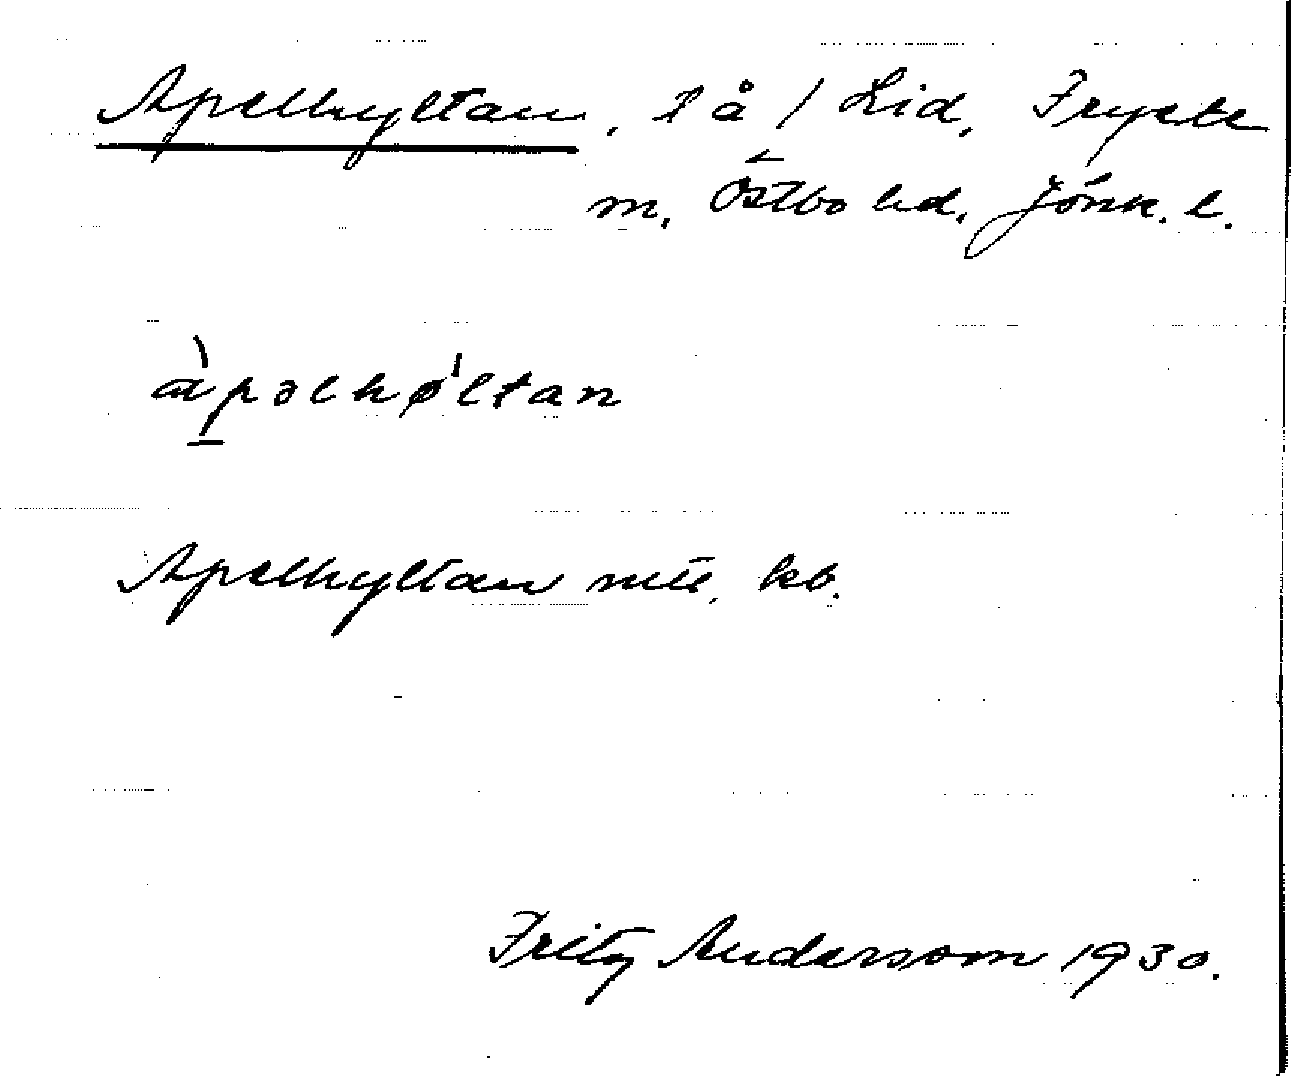 Apelhyltan, l å / Lid, Fryele
m, Östbo hd, Jönk. l.
àpəlhø'ltan
Apelhyltan kb.
Fritz Andersson 1930.